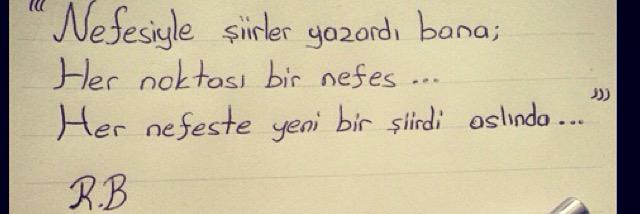 "Nefesiyle şiirler yazardı bana;
Her noktası bir nefes ...
Her nefeste yeni bir şiirdi aslında ..."
R.B